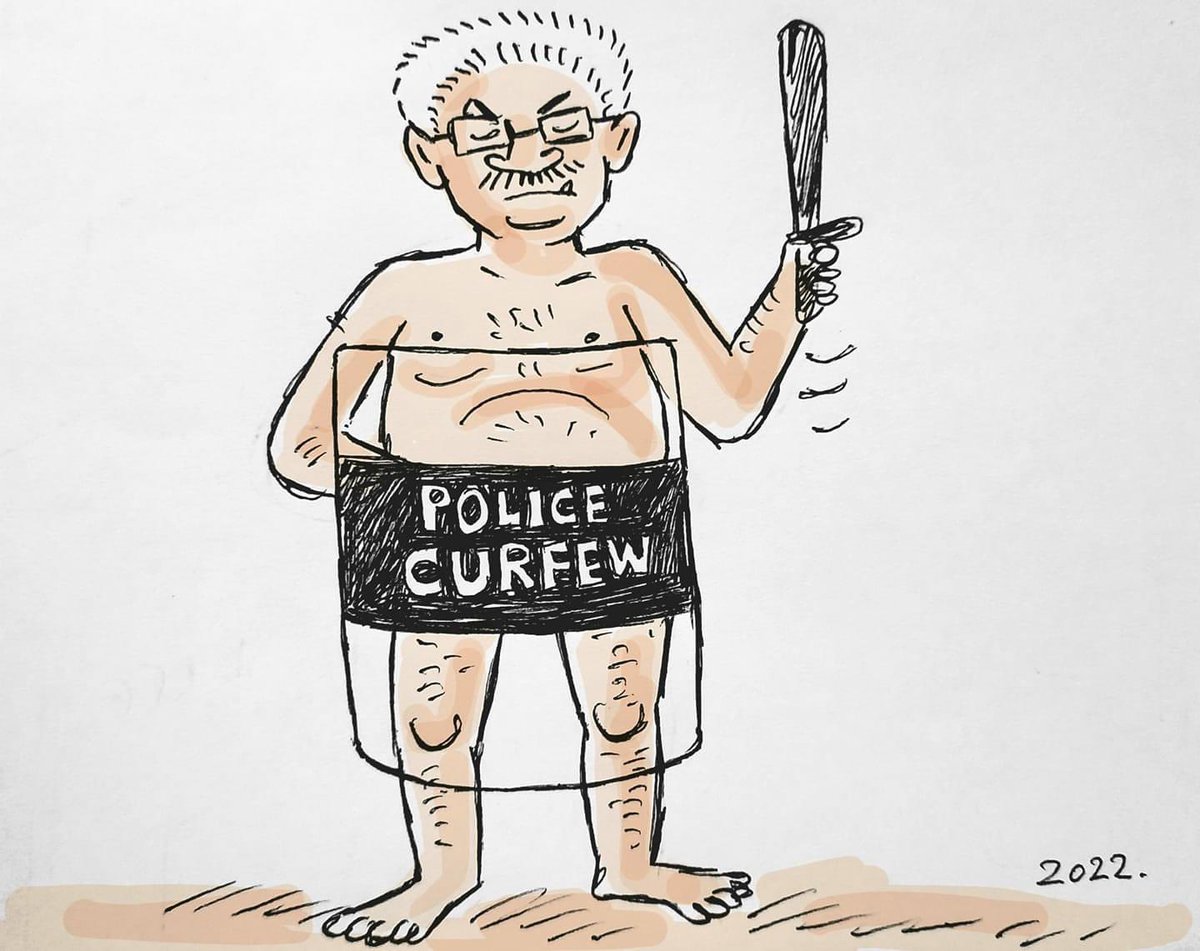 POLICE
CURFEW
2022.